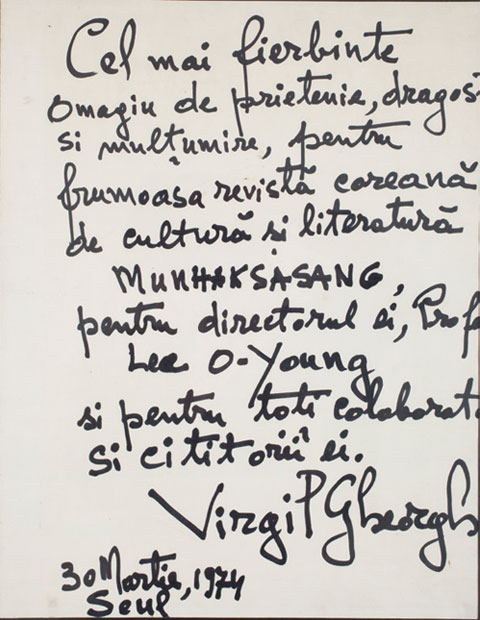 Cel mai fierbinte
omagiu de prietenie, dragos
si mulțumire, pentru
frumoasa revistă coreană
de cultură și literatură
MUNHAKSASANG,
pentru directorul ei, Prof
Lee O-Young
si pentru toti colaborat
Si cititorii ei.
Virgil Gheorgh
30 Martie, 1974
Seul